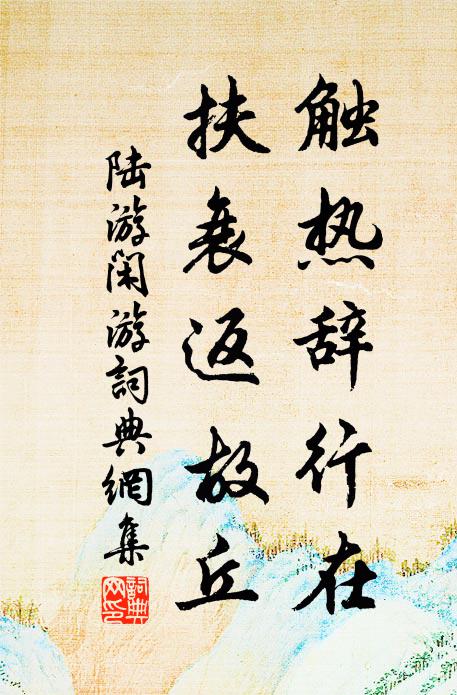 触热辞行在
扶衰返故丘
陆游闲游詞典網集
詞典网印